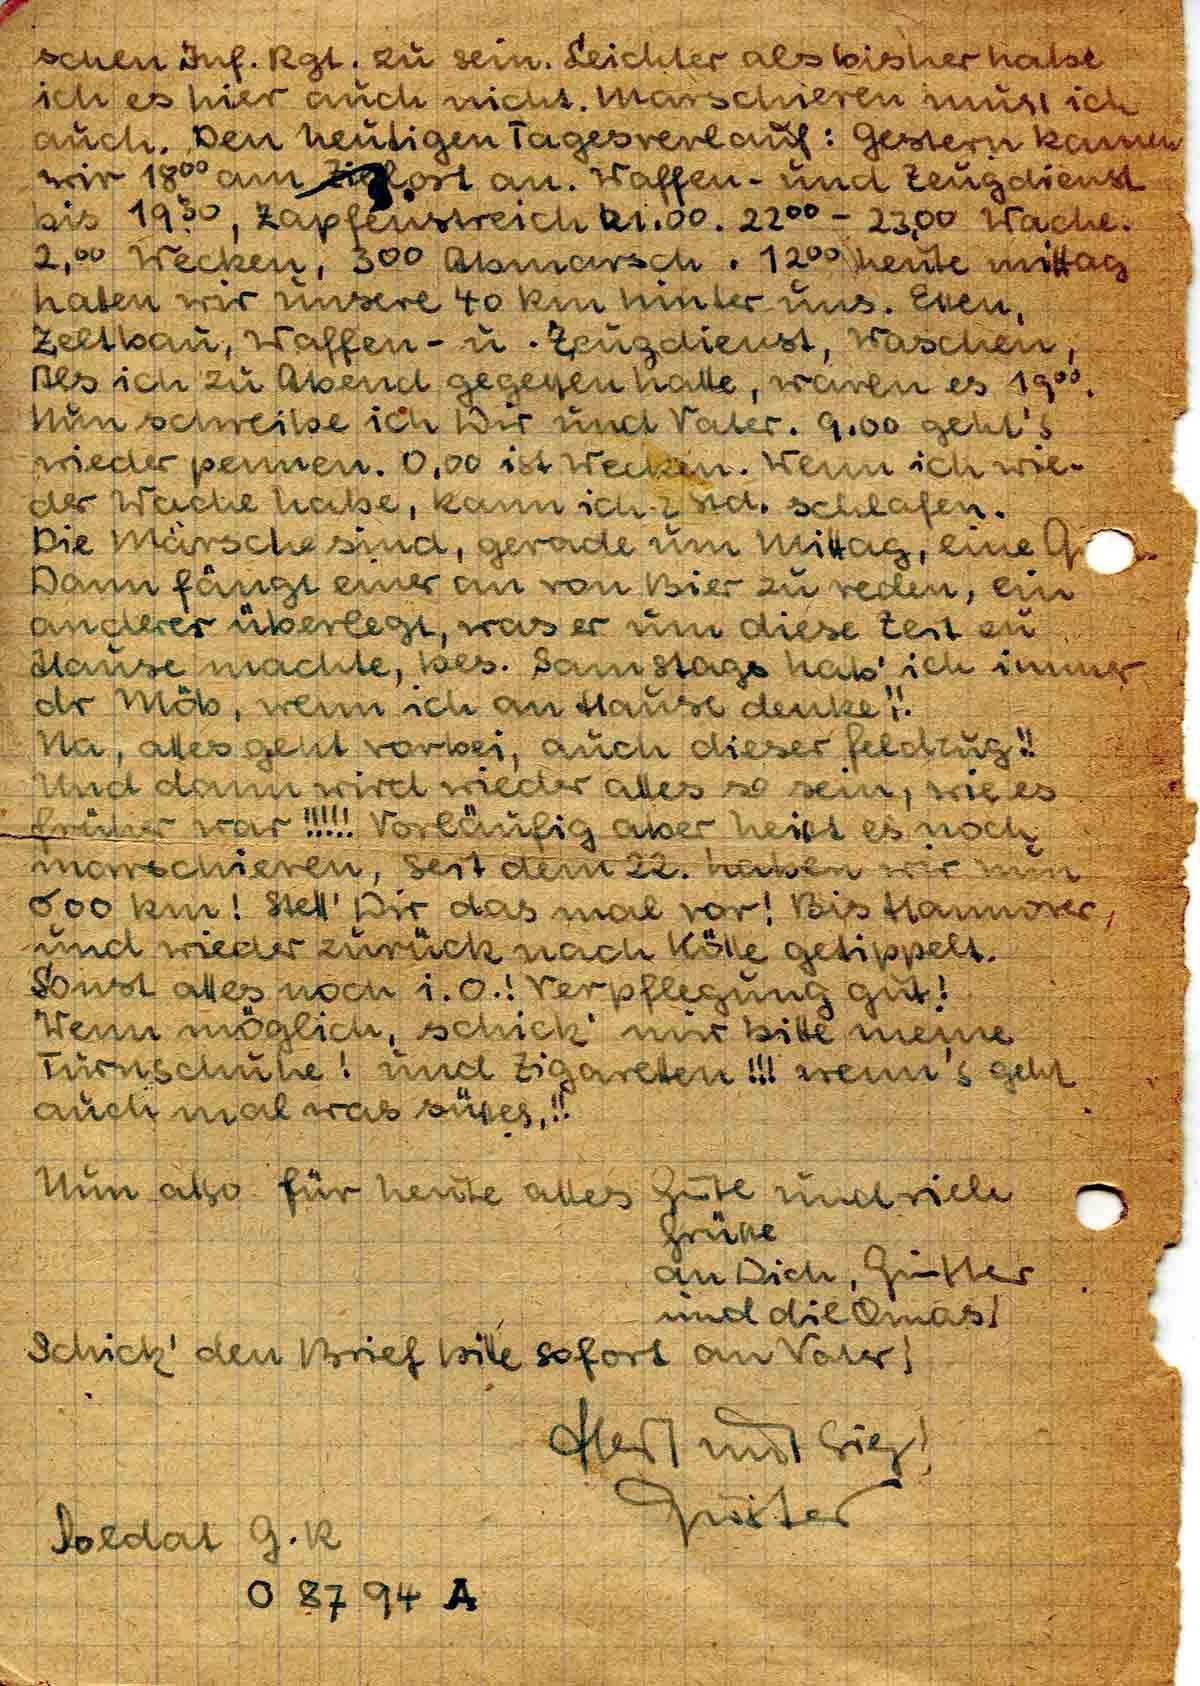 schen Inf. Rgt. zu sein. Leichter als bisher habe
ich es hier auch nicht. Marschieren muss ich
auch. Den heutigen Tagesverlauf: Gestern kamen
wir 18⁰⁰ am ost an. Waffen- und Zeugdienst
bis 19³⁰, Zapfenstreich 21.00. 22⁰⁰ - 23,00 Wache.
2,⁰⁰ Wecken, 3⁰⁰ Abmarsch. 12⁰⁰ heute mittag
haben wir unsere 40 km hinter uns. Essen,
Zeltbau, Waffen- u. Zeugdienst, Waschen,
Als ich zu Abend gegessen hatte, waren es 19⁰⁰.
Nun schreibe ich Dir und Vater. 9.00 geht's
wieder pennen. 0,00 ist Wecken. Wenn ich wie-
der Wache habe, kann ich 2 Std. schlafen.
Die Märsche sind, gerade um Mittag, eine
Dann fängt einer an von Bier zu reden, ein
anderer überlegt, was er um diese Zeit zu
Hause machte, bes. Samstags hab' ich immer
dr Möb, wenn ich an Hause denke!!
Na, alles geht vorbei, auch dieser Feldzug!!
Und dann wird wieder alles so sein, wie es
früher war!!!!! Vorläufig aber heisst es noch
marschieren, seit dem 22. haben wir nun
600 km! Stell' Dir das mal vor! Bis Hannover,
und wieder zurück nach Kölle getippelt.
Sonst alles noch i.O.! Verpflegung gut!
Wenn möglich, schick' mir bitte meine
Turnschuhe! und Zigaretten!!! wenn's geht
auch mal was süsses,!!
Nun also für heute alles Gute und viele
Grüsse
an Dich, Günther
und die Omas!
Schick' den Brief bitte sofort an Vater!
Herz und Sieg!
Günter
Soldat G.K
0 87 94 A